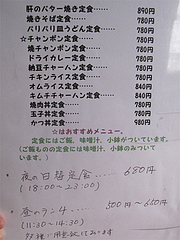 肝のバター焼き定食…… 890円
焼きそば定食…………… 780円
バリバリ皿うどん定食… 780円
☆チャンポン定食……… 780円
焼チャンポン定食……… 780円
ドライカレー定食……… 780円
納豆チャーハン定食…… 780円
チキンライス定食……… 780円
オムライス定食………… 880円
キムチチャーハン定食… 880円
焼肉丼定食……………… 780円
玉子丼定食……………… 780円
かつ丼定食……………… 980円
☆はおすすめメニュー。
定食にはご飯、味噌汁、小鉢がついています。
(ご飯ものの定食には味噌汁、小鉢のみついています。)
夜の日替定食…… 680円
(18:00~23:00)
昼のランチ…… 500円~650円
(11:30~14:30)
各種ご用意致しております